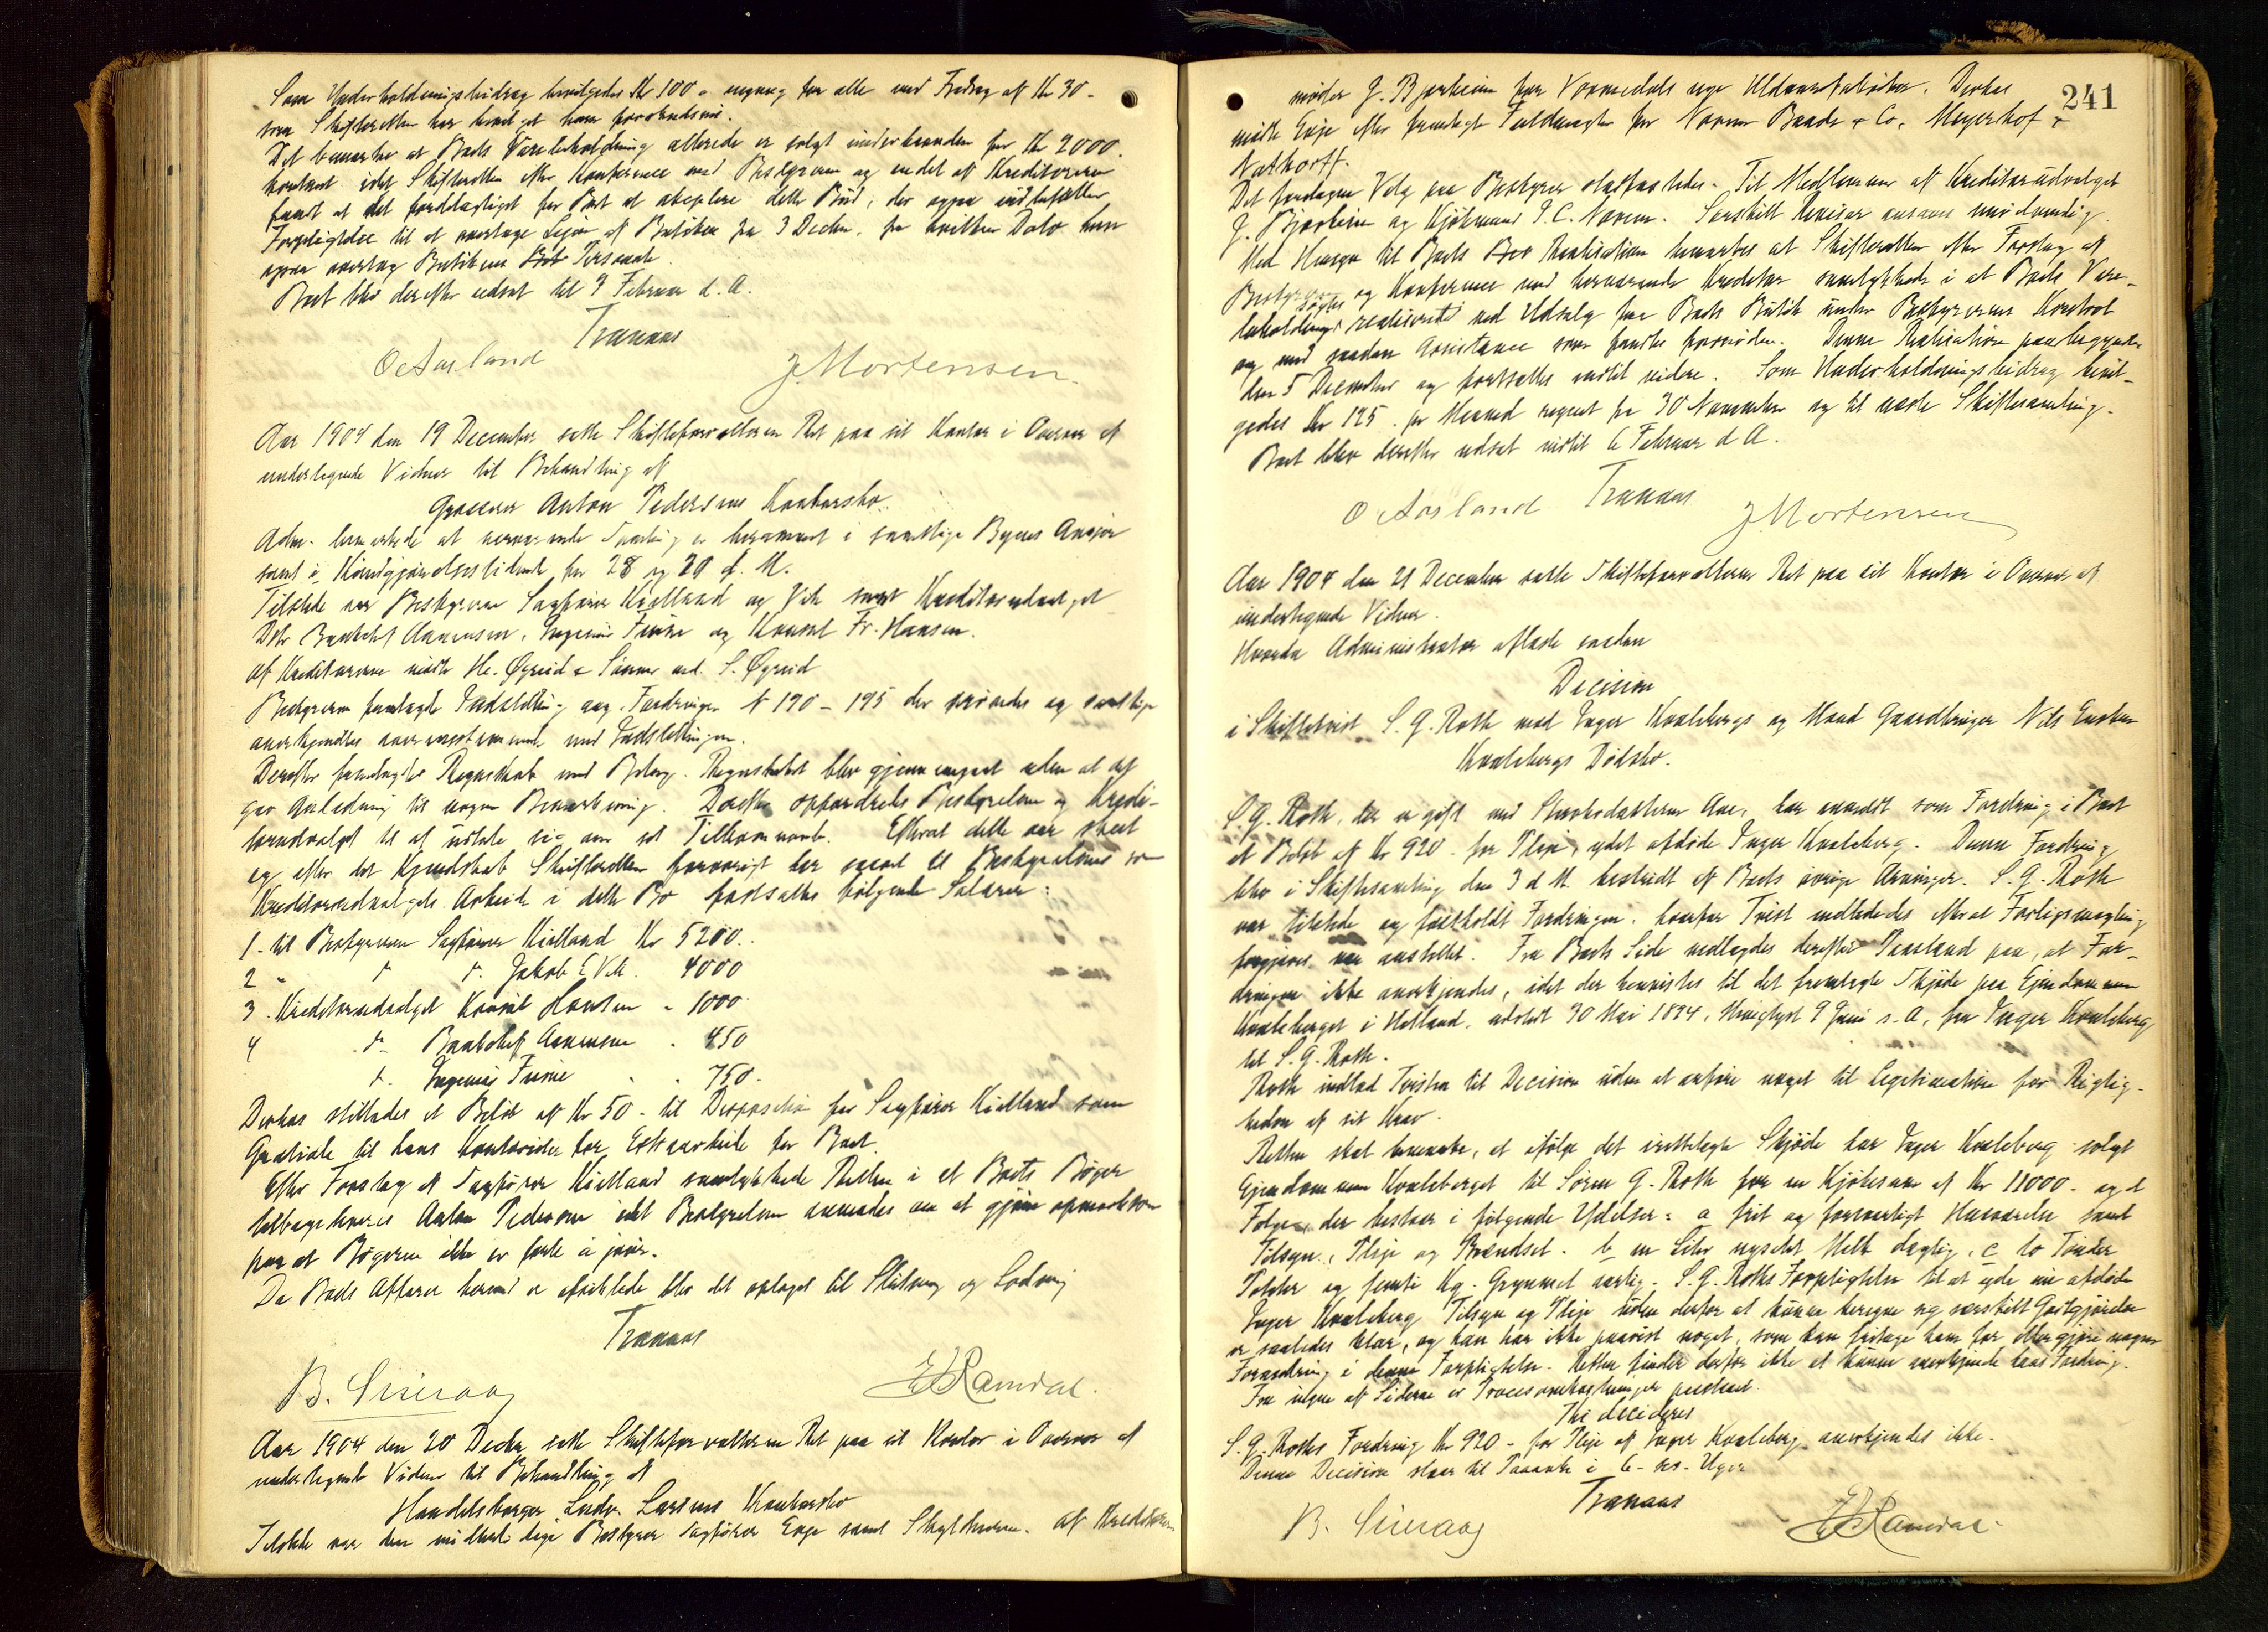 Som Underholdningsbidrag bevilgedes Kr 100 - engang for alle med Fradrag af Kr 30 -
som Skifteretten har bevilget ham forskudsvis.
Det bemærkes at Boets Varebeholdning allerede er solgt underhaanden for Kr 2000.
kontant idet Skifteretten efter Konference med Bestyreren og endel af Kreditorerne
fandt at det fordelagtigst for Boet at akceptere dette Bud, der ogsaa indbefatter
Forpligtelse til at overtage Lejen af Butiken fra 3 Decbr. fra hvilken Dato han
ogsaa overtog Butikens Personale.
Boet blev derefter udsat til 9 Februar d. A.
Tranaas
O Aasland J Mortensen.
Aar 1904 den 19 December satte Skifteforvalteren Ret paa sit Kontor i Overvær af
undertegnede Vidner til Behandling af
Grosserer Anton Pedersens Konkursbo.
Adm. bemærkede at nærværende Samling er berammet i samtlige Byens Aviser
samt i Kundgjørelsestidende for 28 og 29 f. M.
Tilstede var Bestyrerne Sagfører Kielland og Vik samt Kreditorudvalget
DHr Bankchef Aanensen, Ingeniør Furne og Konsul Fr. Hansen.
Af Kreditorerne mødte He. Øgreid & Sønner ved S. Øgreid
Bestyreren fremlagde Indstilling ang. Fordringer N 190 - 195 der prøvedes og samtlige
anerkjendtes overensstemmende med Indstillingen.
Derefter fremlagdes Regnskab med Bilag. Regnskabet blev gjennemgaaet uden at det
gav Anledning til nogen Bemærkning. Derefter opfordredes Bestyrelsen og Kredi-
torudvalget til at udtale sig om sit Tilkommende. Efterat dette var skeet
og efter det Kjendskab Skifteretten forøvrigt har saavel til Bestyrelsens som
Kreditorudvalgets Arbeide i dette Bo fastsattes følgende Salærer:
1. til Bestyreren Sagfører Kielland Kr 5200.
2 " " Jakob E Vik. 4000
3. Kreditorudvalget Konsul Hansen " 1000.
4 " Bankchef Aanensen " 450
" Ingeniør Furne " 750.
Derhos stilledes et Beløb af Kr 50 - til Disposition for Sagfører Kielland som
Gratiale til hans Kontorister for Extraarbeide for Boet.
Efter Forslag af Sagfører Kielland samtykkede Retten i at Boets Bøger
tilbageleveres Anton Pedersen idet Bestyrelsen anmodes om at gjøre opmerksom
paa at Bøgerne ikke er førte à jour.
Da Boets Affærer hermed er afviklede blev det optaget til Slutning og Lodning
Tranaas
B. Siqveland E B Ramdal.
Aar 1904 den 20 Decbr satte Skifteforvalteren Ret paa sit Kontor i Overvær af
undertegnede Vidner til Behandling af
Handelsborger Ludv. Larsens Konkursbo
Tilstede var den midlertidige Bestyrer Sagfører Enge samt Skyldneren. Af Kreditorer
241
møder J. Bjørheim for Varmedals nye Uldvarefabriker. Derhos
mødte Enje efter fremlagte Fuldmagter for Naeve Baade & Co. Meyerhof &
Nathorff.
Det foretagne Valg paa Bestyrer stadfæstedes. Til Medlemmer af Kreditorudvalget
J. Bjørheim og Kjøbmand P. C. Naeve. Særskilt Revisor ansaaes unødvendig.
Med Hensyn til Boets Realisation bemærkes at Skifteretten efter Forslag af
Bestyreren og Konference med herværende Kreditor samtykkede i at Boets Vare-
beholdning søges realiseret ved Udsalg fra Boets Butik under Bestyrerens Kontrol
og med saadan Assistance som fandtes fornøden. Denne Realisation paabegyndtes
den 5 December og fortsættes indtil videre. Som Underholdningsbidrag bevil-
gedes Kr 125. pr Maaned regnet fra 30 November og til næste Skiftesamling.
Boet blev derefter udsat indtil 6 Februar d A.
Tranaas
O Aasland J Mortensen
Aar 1904 den 21 December satte Skifteforvalteren Ret paa sit Kontor i Overvær af
undertegnede Vidner.
Hvorda Administrator afsagde saadan
Decision
i Skiftetvist S. G. Roth mod Inger Kvalebergs og Mand Gaardbruger Nils Enoksen
Kvalebergs Dødsbo.
S. G. Roth, der er gift med Stervbodatteren Ane, har anmeldt som Fordring i Boet
et Beløb af Kr 920 - for Pleje, ydet afdøde Inger Kvaleberg. Denne Fordring
blev i Skiftesamling den 3 d M. bestridt af Boets øvrige Arvinger. S. G. Roth
var tilstede og fastholdt Fordringen, hvorfor Tvist indlededes efterat Forligsmægling
forgjæves var anstillet. Fra Boets Side nedlagdes derefter Paastand paa, at For-
dringen ikke anerkjendes, idet der henvistes til det fremlagte Skjøde paa Ejendommen
Kvaleberget i Hetland, udstedt 30 Mai 1894, thinglyst 9 Juni s. A. fra Inger Kvaleberg
til S. G. Roth.
Roth indlod Tvisten til Decision uden at anføre noget til Legitimation for Rigtig-
heden af sit Krav.
Retten skal bemærke, at ifølge det irettelagte Skjøde har Inger Kvaleberg solgt
Ejendommen Kvaleberget til Søren G. Roth for en Kjøbesum af Kr 11000 - og et
Følge, der bestaar i følgende Ydelser: a frit og forsvarligt Husværelse samt
Tilsyn, Pleje og Brændsel. b en Liter nysilet Melk daglig, c to Tønder
Poteter og femti Kg. Grynmel aarlig. S. G. Roths Forpligtelse til at yde nu afdøde
Inger Kvaleberg Tilsyn og Pleje uden derfor at kunne beregne sig særskilt Godtgjørelse
er saaledes klar, og han har ikke paavist noget, som kan fritage ham for eller gjøre nogen
Forandring i denne Forpligtelse. Retten finder derfor ikke at kunne anerkjende hans Fordring.
Fra ingen af Siderne er Procesomkostninger paastaaet.
Thi decideres
S. G. Roths Fordring Kr 920 - for Pleje af Inger Kvaleberg anerkjendes ikke.
Denne Decision staar til Paaanke i 6 - sex - Uger
Tranaas
B. Siqveland E B Ramdal.